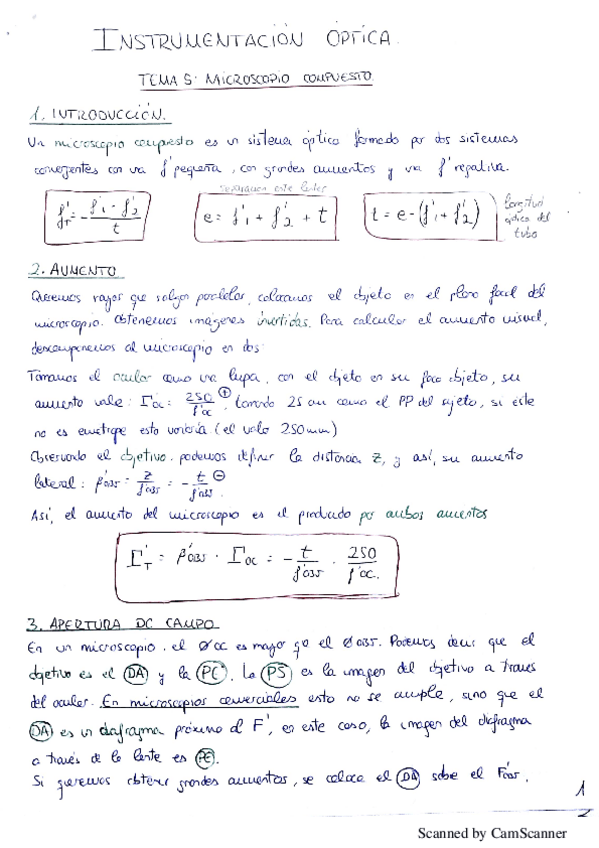 INSTRUMENTACIÓN ÓPTICA.
TEMA 5: MICROSCOPIO COMPUESTO
1. INTRODUCCIÓN.
Un microscopio compuesto es un sistema óptico formado por dos sistemas
convergentes con una f' pequeña, con grandes aumentos y una f' negativa.
separación entre lentes
f'T = - f'1 · f'2 / t
e = f'1 + f'2 + t
t = e - (f'1 + f'2)
longitud óptica del tubo
2. AUMENTO
Queremos rayos que salgan paralelos, colocamos el objeto en el plano focal del
microscopio. Obtenemos imágenes invertidas. Para calcular el aumento visual,
descomponemos al microscopio en dos:
Tomamos el ocular como una lupa, con el objeto en su foco objeto, su
aumento vale: Γ'oc: 250 / f'oc ⊕, tomando 25 cm como el PP del sujeto, si este
no es emétrope esto variaría (el valor 250mm)
Observando el objetivo, podemos definir la distancia z, y así, su aumento
lateral: β'OBJ = z / f'OBJ = - t / f'OBJ ⊖
Así, el aumento del microscopio es el producido por ambos aumentos
Γ'T = β'OBJ · Γoc = - t / f'OBJ · 250 / f'oc.
3. APERTURA DE CAMPO
En un microscopio, el ØOC es mayor que el ØOBJ. Podemos decir que el
objetivo es el DA y la . La PS es la imagen del objetivo a traves
del ocular. En microscopios comerciales esto no se cumple, sino que el
DA es un diafragma próximo al F', en este caso, la imagen del diafragma
a través de la lente es PE.
Si queremos obtener grandes aumentos, se coloca el DA sobre el
1
2
Scanned by CamScanner